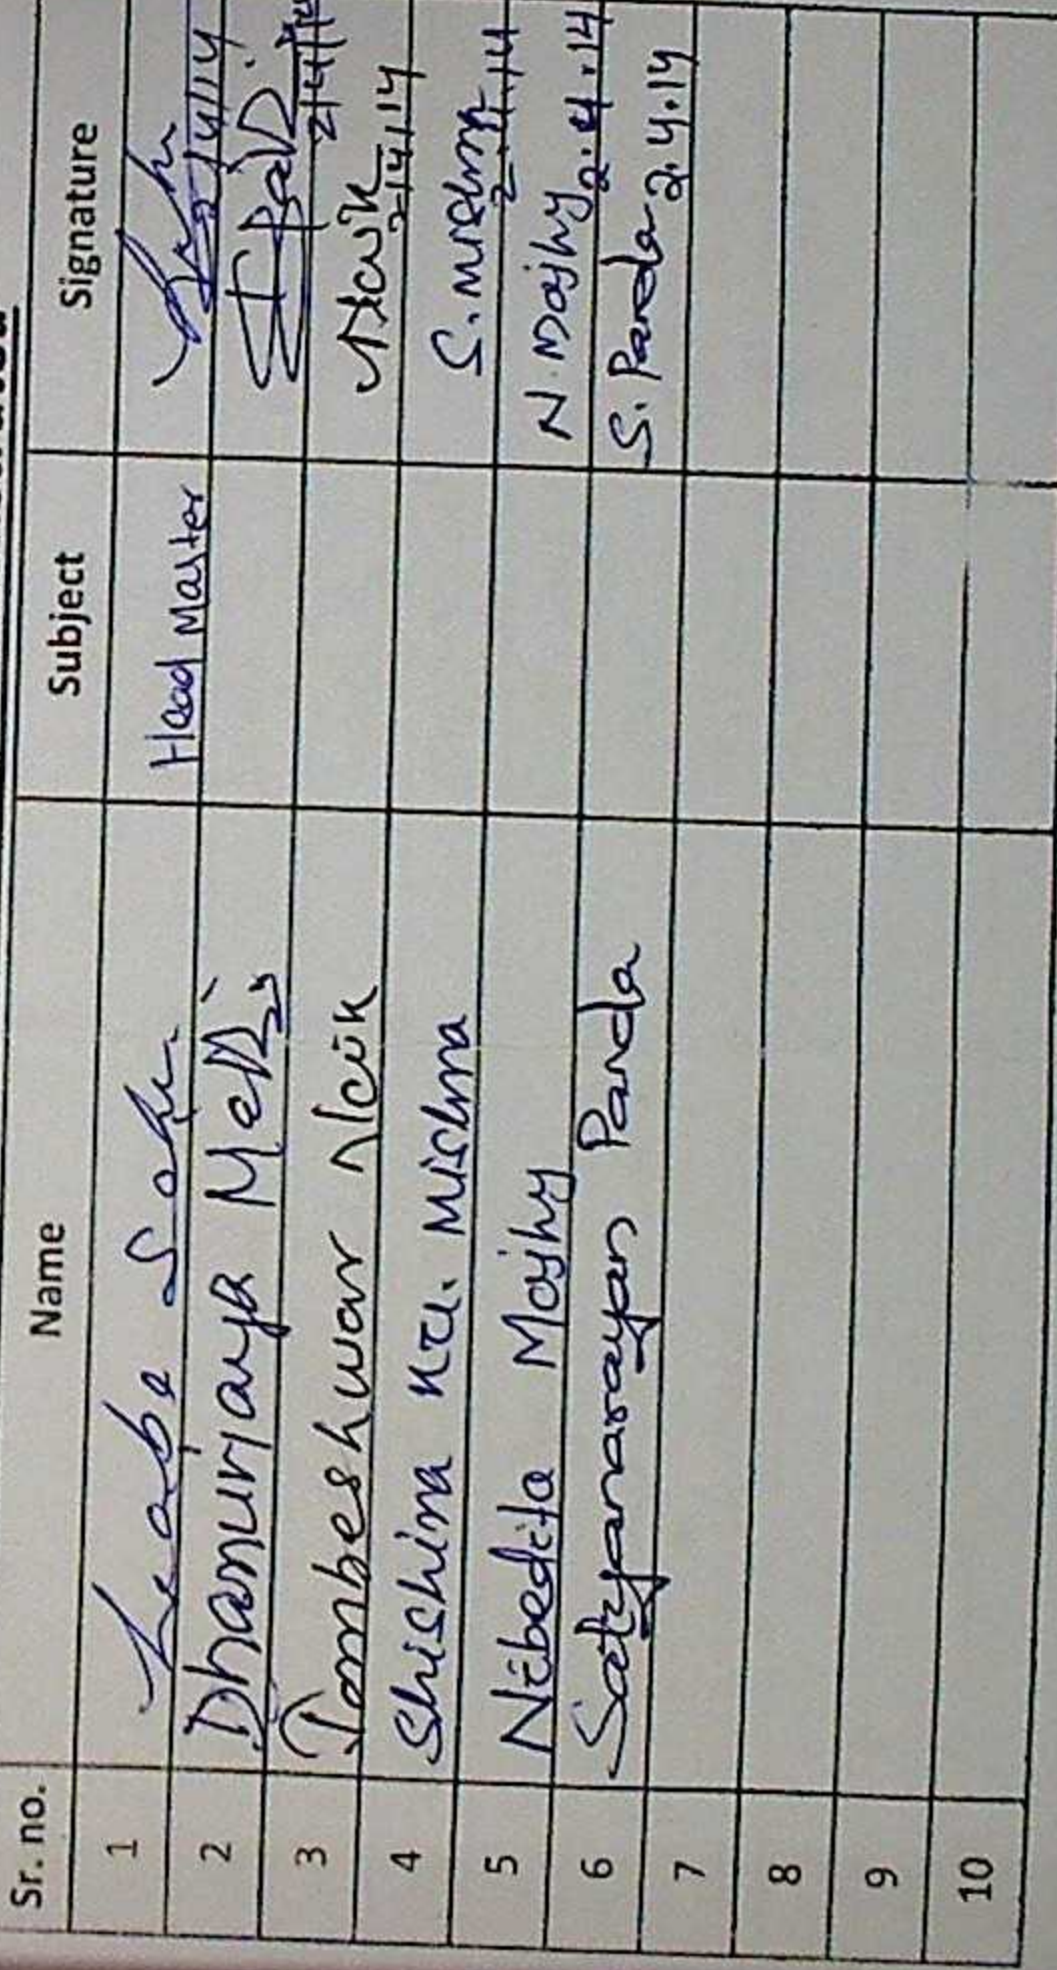 Sr. no. Name Subject Signature
1 Sahu Head Master
2 Dhanurjaya 2/4/14
3 Tombeshwar Naik Naik 2/4/14
4 Shishira Ku. Mishra S. Mishra 2.4.14
5 Nibedita Majhy N. Majhy 2.4.14
6 Satyanarayan Panda S. Panda 2.4.14
7
8
9
10